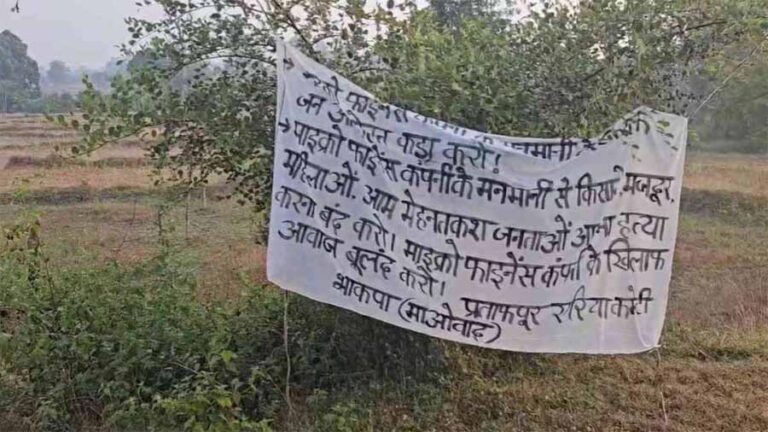 → फाईनेंस के मनमानी
जन आंदोलन कड़ा करो!
→ माइक्रो फाईनेंस कंपनी के मनमानी से किसान, मजदूर,
महिलाओं, आम मेहनतकश जनताओं आत्म हत्या
करना बंद करो। माइक्रो फाइनेंस कंपनी के खिलाफ
आवाज बूलंद करो!
भाकपा (माओवाद) प्रतापपूर एरिया कमेटी